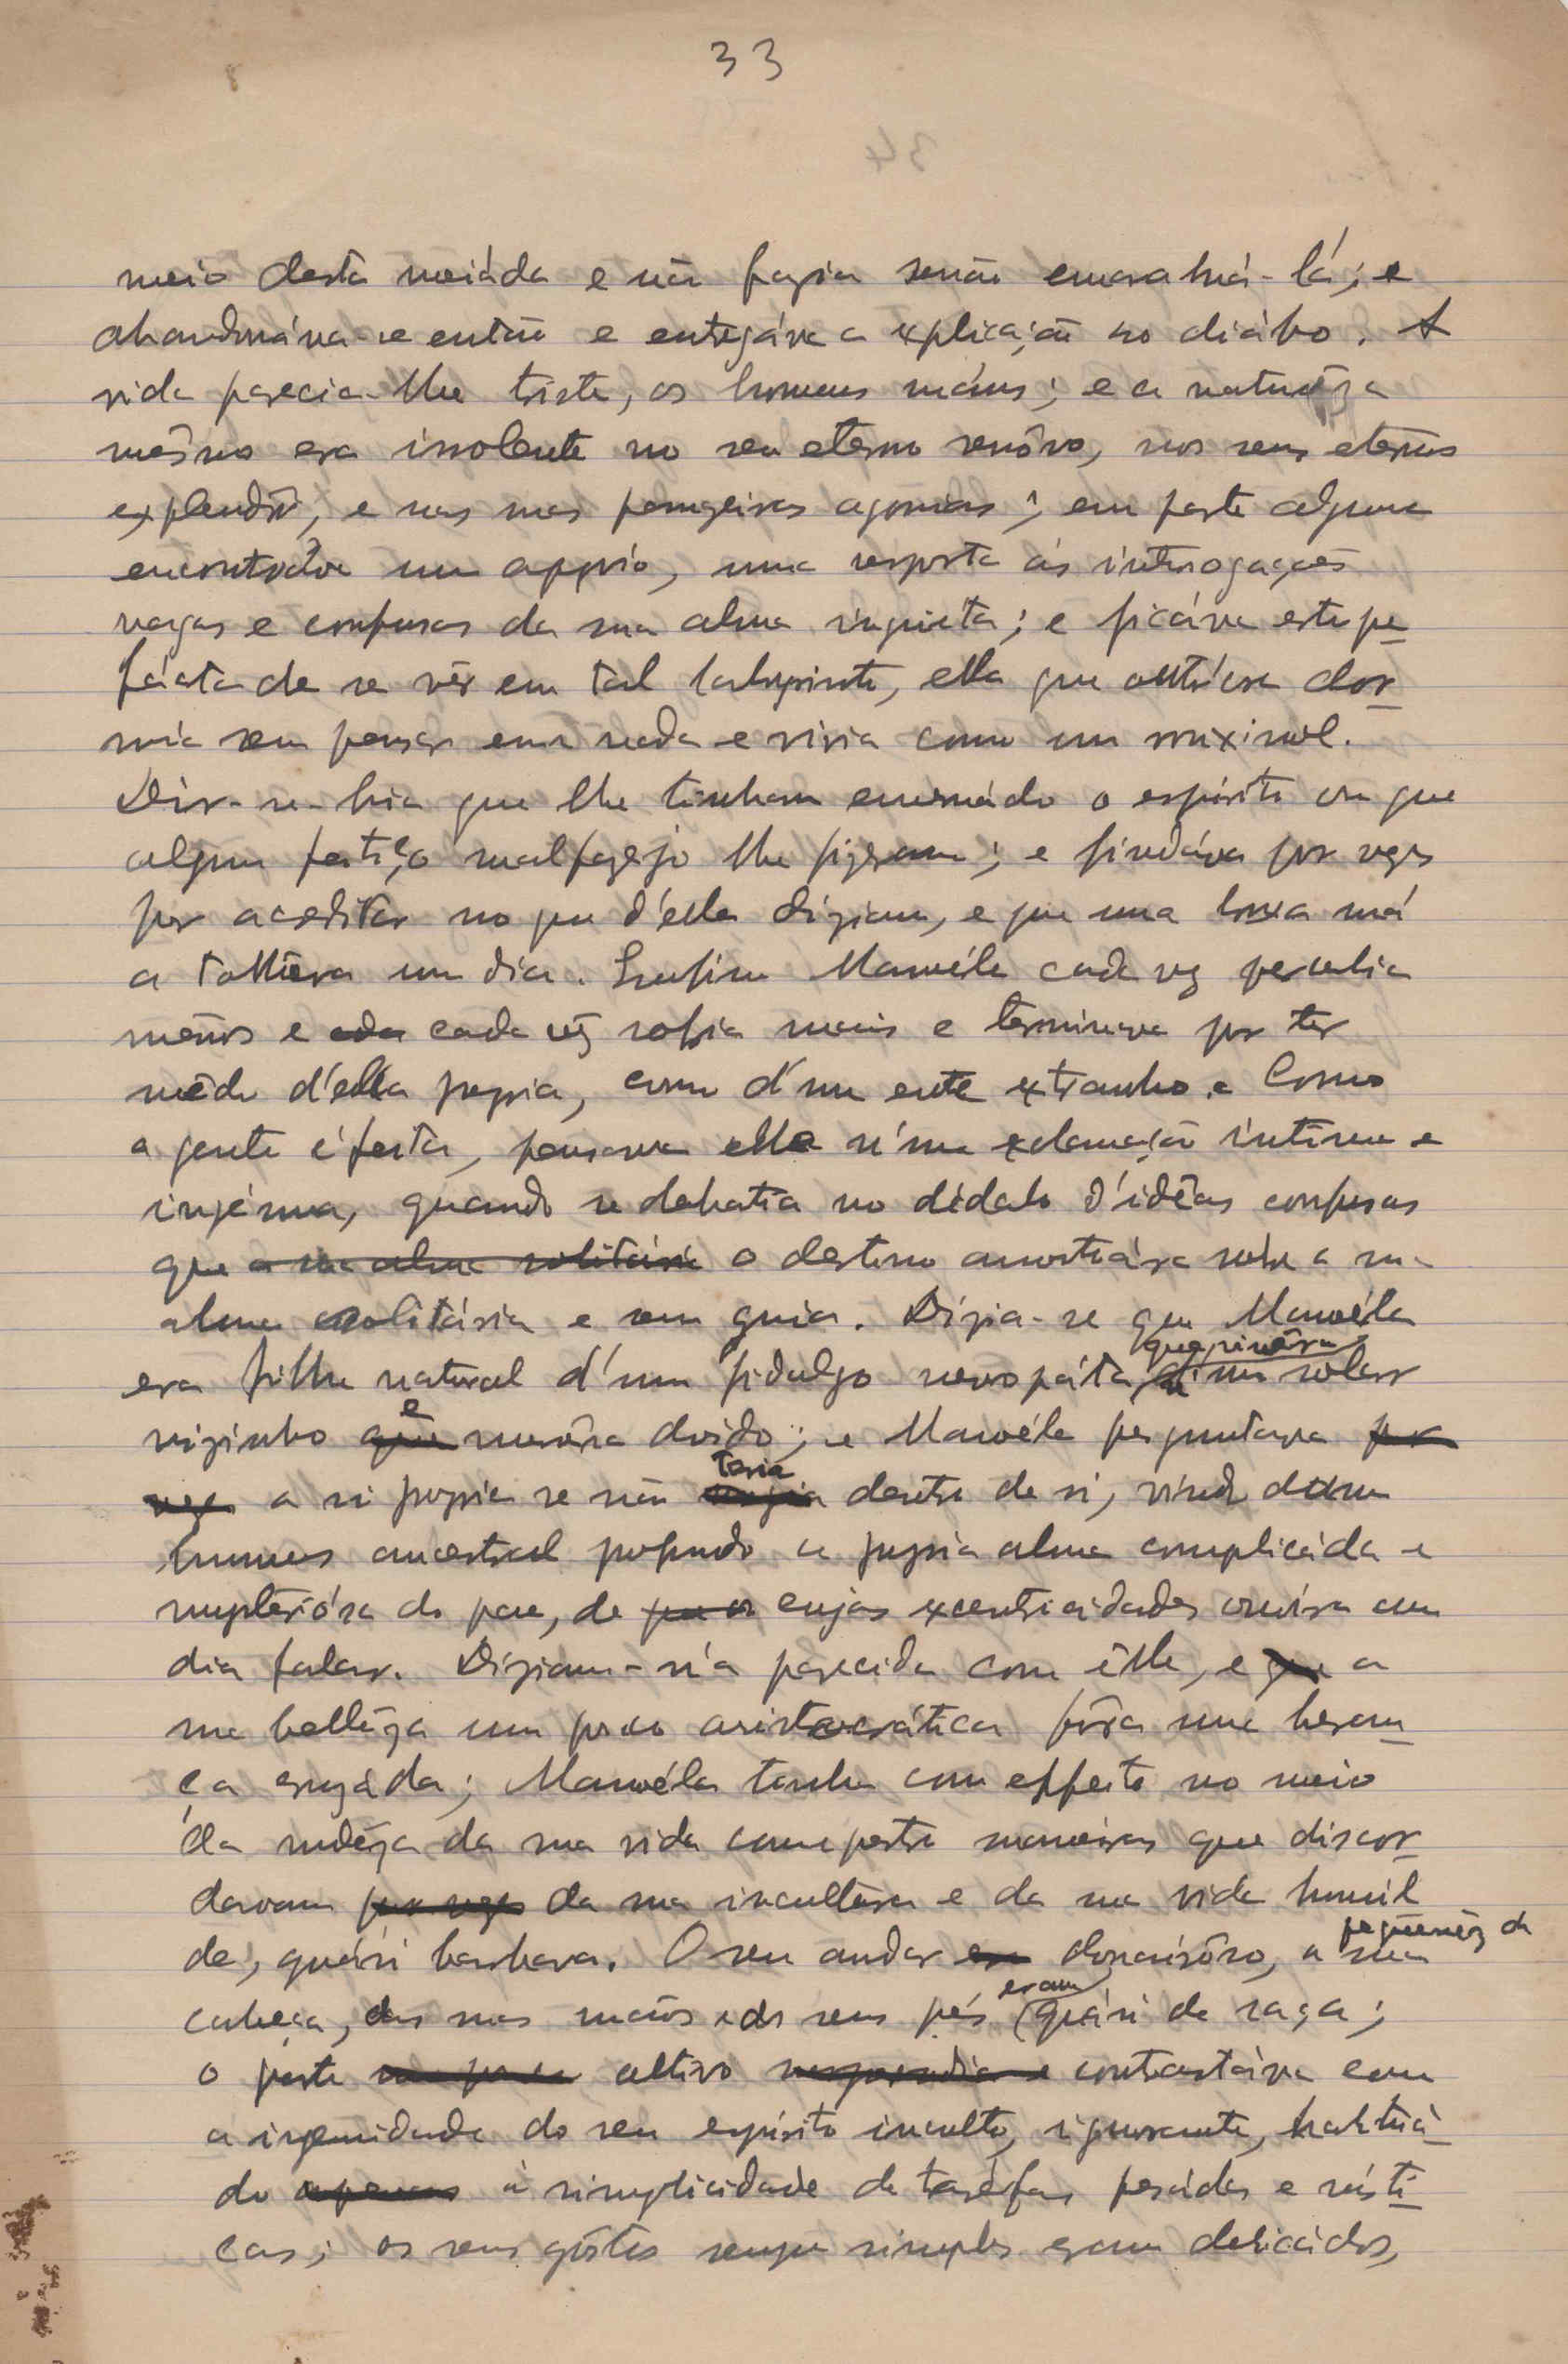 33
meio desta meiáda e não fazia senão emaranhá-la; e
abandonáva-se então e entregáva a explicação ao diábo. A
vida parecia-lhe triste, os homens máus; e a naturêza
mêsmo era insolente no seu eterno renôvo, nos seus eternos
explendôr, e nas suas passageiras agonias; em parte alguma
encontrava um appoio, uma resposta ás interrogações
vagas e confusas da sua alma inquieta; e ficáva estupe-
fácta de se vêr em tal labyrinto, ella que outróra dor-
mia sem pensar em nada e vivia como um rouxinol.
Dir-se-hia que lhe tinham envenenádo o espirito ou que
algum feitiço malfazejo lhe fizeram; e findáva por vezes
por acreditar no que d'ella diziam, e que uma bruxa má
a tolhêra um dia. Emfim Manoéla cada vez percebia
mênos e cada vêz sofria mais e terminava por ter
mêdo d'ella propria, como d'um ente extranho. Como
a gente é feita, pensava ella n'uma exclamação intima e
ingénua, quando se debatia no dédalo d'idêas confusas
que a sua alma solitária o destino amostrára sobre a sua
alma solitária e sem guia. Dizia-se que Manoéla
era filha natural d'um fidalgo nevropáta, que vivêra n'um solar
vizinho e morrêra doido; e Manoéla perguntava por
vezes a si propria se não teria dentro de si, vindo d'um
humus ancestral profundo a propria alma complicáda e
mysteriósa do pae, de cujas excentricidades ouvira um
dia falar. Diziam-n'a parecida com êlle, e que a
sua bellêza um pouco aristocrática fôra uma heran-
ça cruzáda; Manoéla tinha com effeito no meio
da rudêza da sua vida campestre maneiras que discor-
davam por vezes da sua incultura e da sua vida humil
de, quási barbara. O seu andar era donairôso, a pequenêz da sua
cabeça, das suas mãos e dos seus pés eram quási de raça;
o porte um pouco altivo contrastáva com
a ingenuidade do seu espirito inculto, ignorante, habituá-
do apenas á simplicidade de taréfas pesádas e rústi-
cas; os seus gôstos sempre simples eram delicádos,